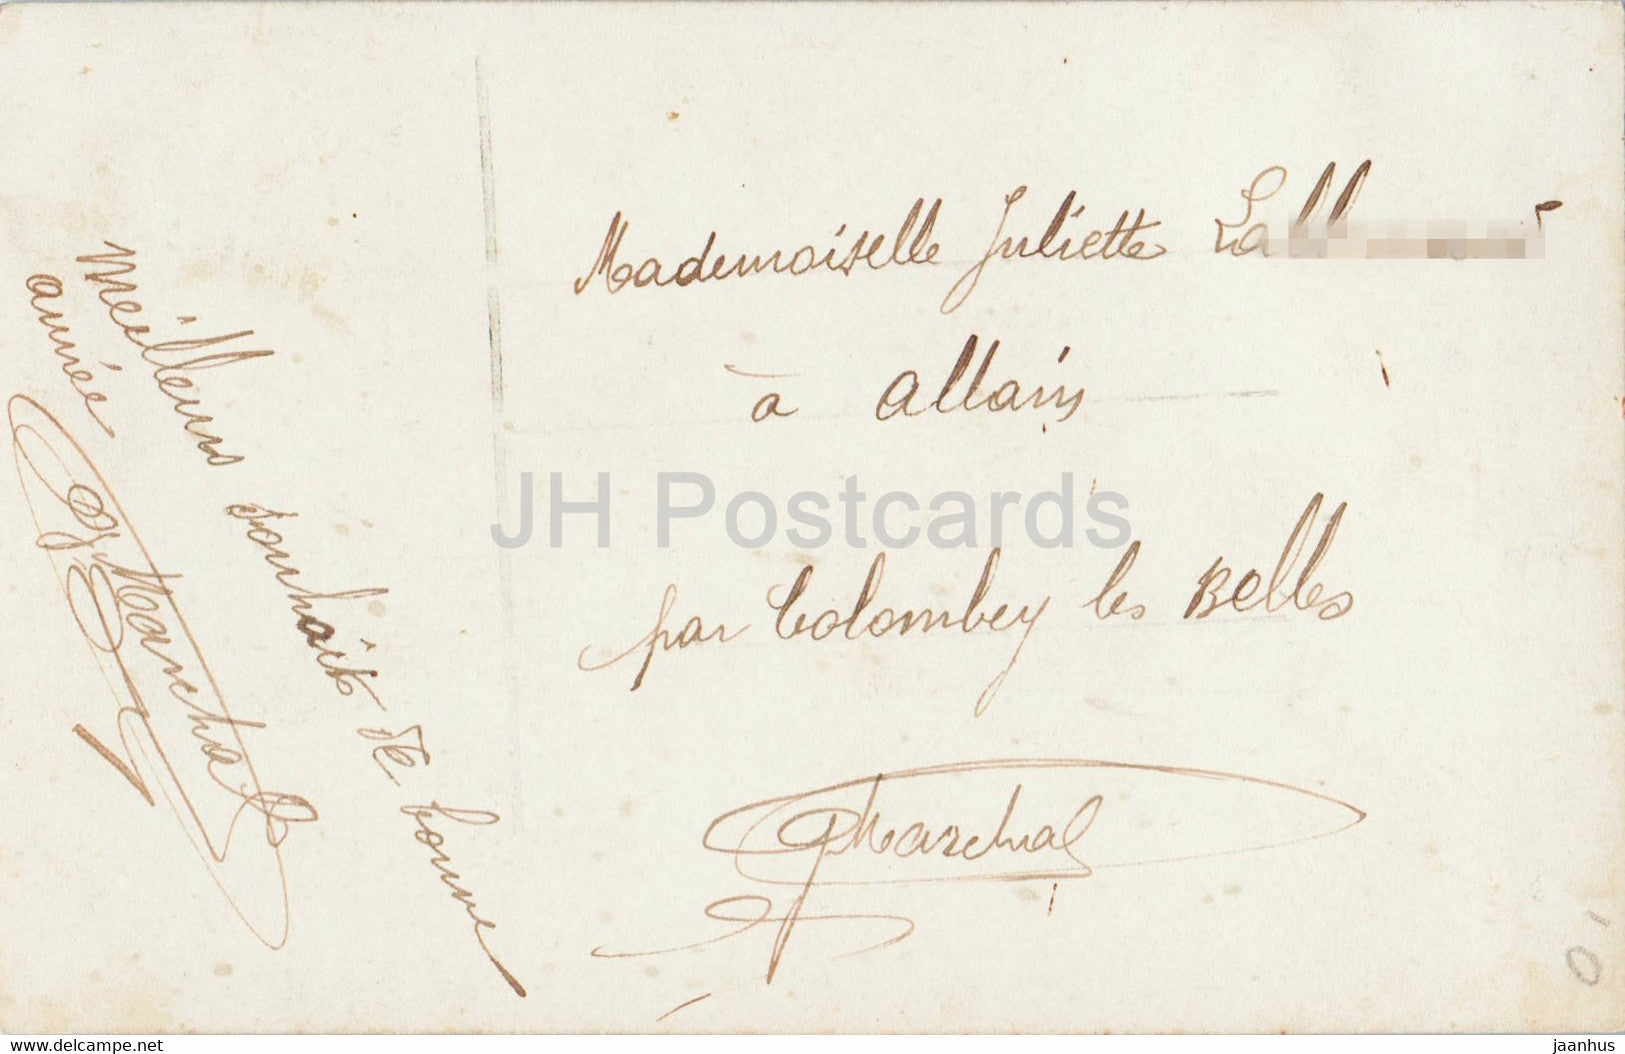 Meilleurs souhaits de bonne
année
Marchal
Mademoiselle Juliette
à Allain
par Colombey les Belles
Marchal
JH Postcards
01
delcampe.net
jaanhus